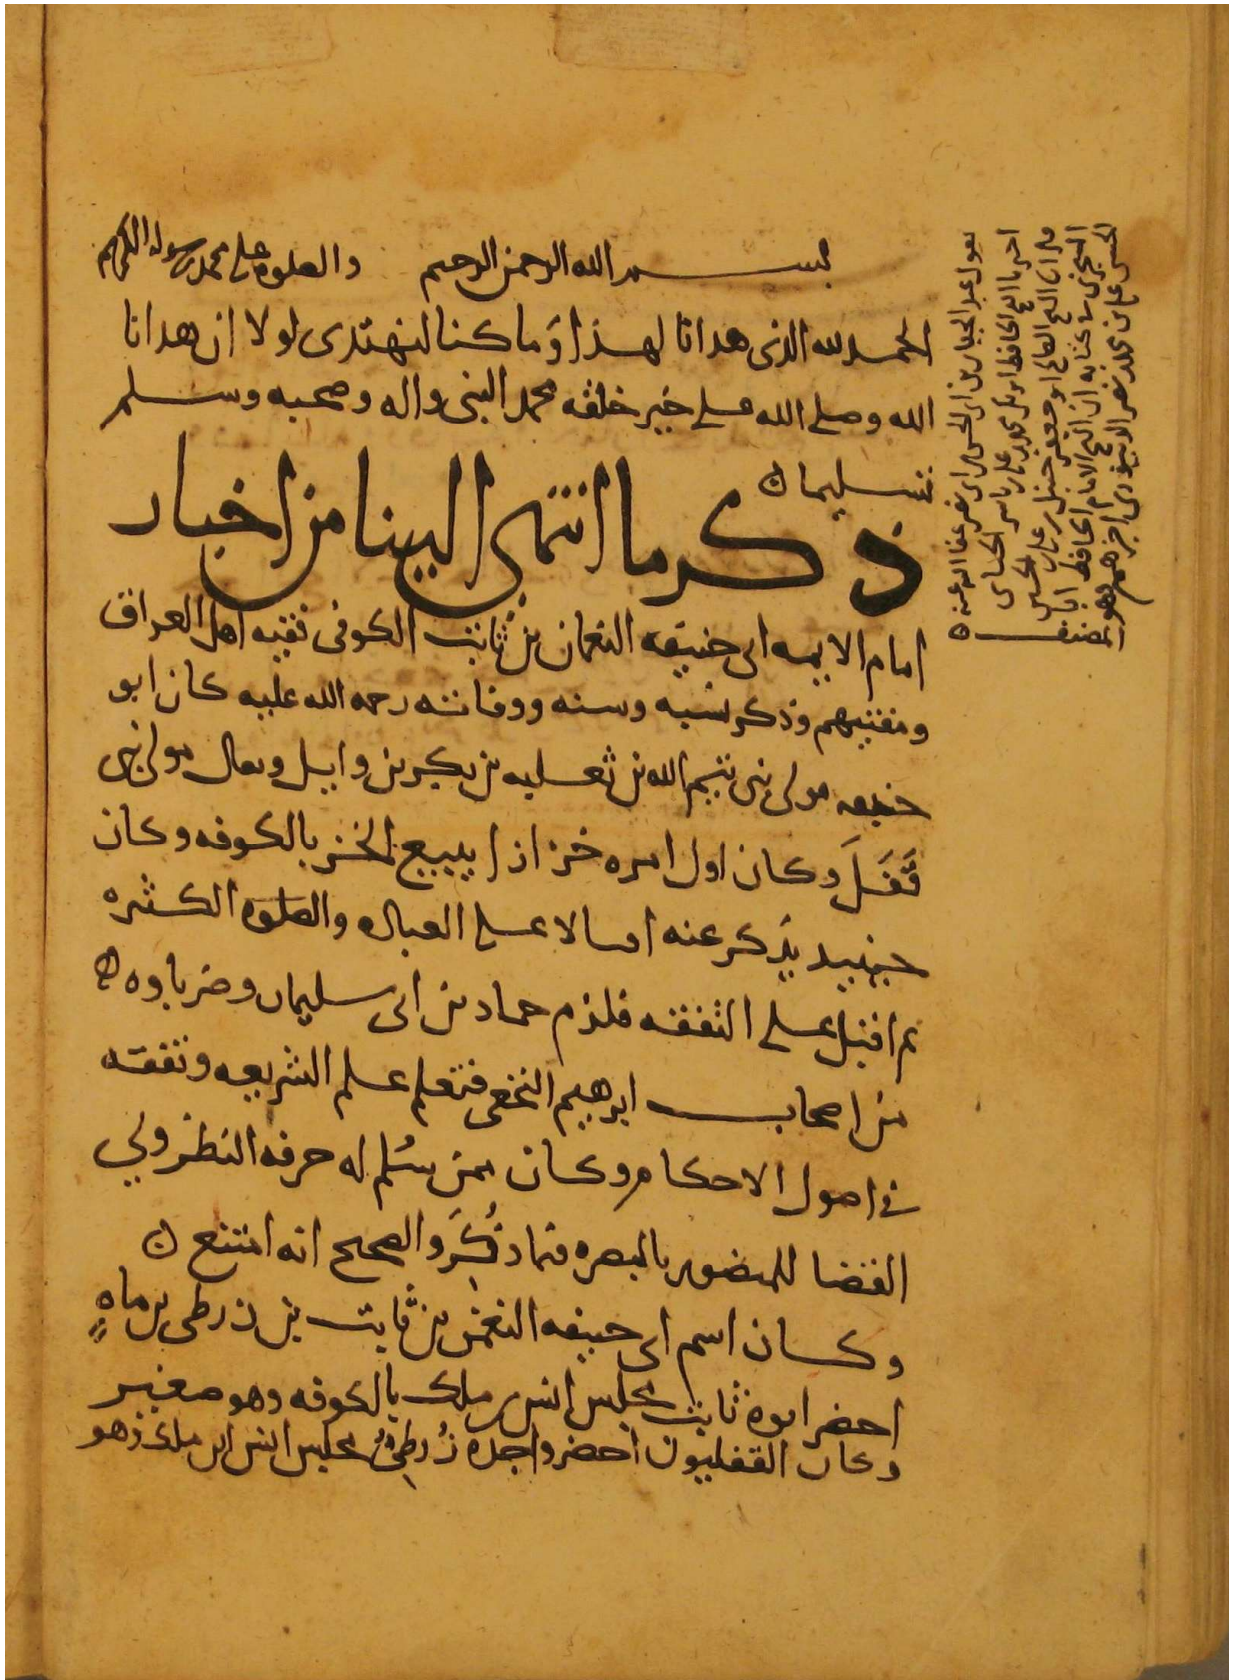 بسم الله الرحمن الرحيم والصلوة على محمد رسوله الكريم
الحمد لله الذى هدانا لهذا وَما كنا لنهتدى لولا ان هدانا
الله وصلى الله على خير خلقه محمد النبى واله وصحبه وسلم
تسليما
ذكر ما انتهى الينا من اخبار
امام الايمه ابى حنيفه النعمان بن ثابت الكوفى فقيه اهل العراق
ومفتيهم وذكر نسبه وسنه ووفاته رحمه الله عليه كان ابو
حنيفه مولى بنى تيم الله بن ثعلبه بن بكر بن وايل ويقال مولى بنى
قَفَلَ وكان اول امره خزازا يبيع الخز بالكوفه وكان
حينيد يذكر عنه اقبالا على العباده والصلوة الكثيره
ثم اقبل على التفقه فلزم حماد بن ابى سليمان وضرباوه
من اصحاب ابرهيم النخعى فتعلم علم الشريعه وتفقه
فى اصول الاحكام وكان ممن سُلم له حرفه النظر ولي
القضا للمنصور بالبصره فيما ذُكِرَ والصحيح انه امتنع
وكان اسم ابى حنيفه النعمن بن ثابت بن زرطى بن ماهٍ
احضر ابوه ثابت مجلس انس بن ملك بالكوفه وهو صغير
وكان القفليون احضروا جده زُرطِىُّ مجلس انس ابن ملك وهو
يقول عبد الجبار بن ابى الحسن عفا الله عنه
اخبرنا الشيخ الحافظ ابو بكر محمد بن على بن ياسر الجيانى
قال ان الشيخ العالم ابو جعفر حنبل بن على بن الحسين
السجزى فى كتابه ان الشيخ الامام الحافظ ابا
الحسن على بن محمد بن نصر اخبرهم وهو
المصنف